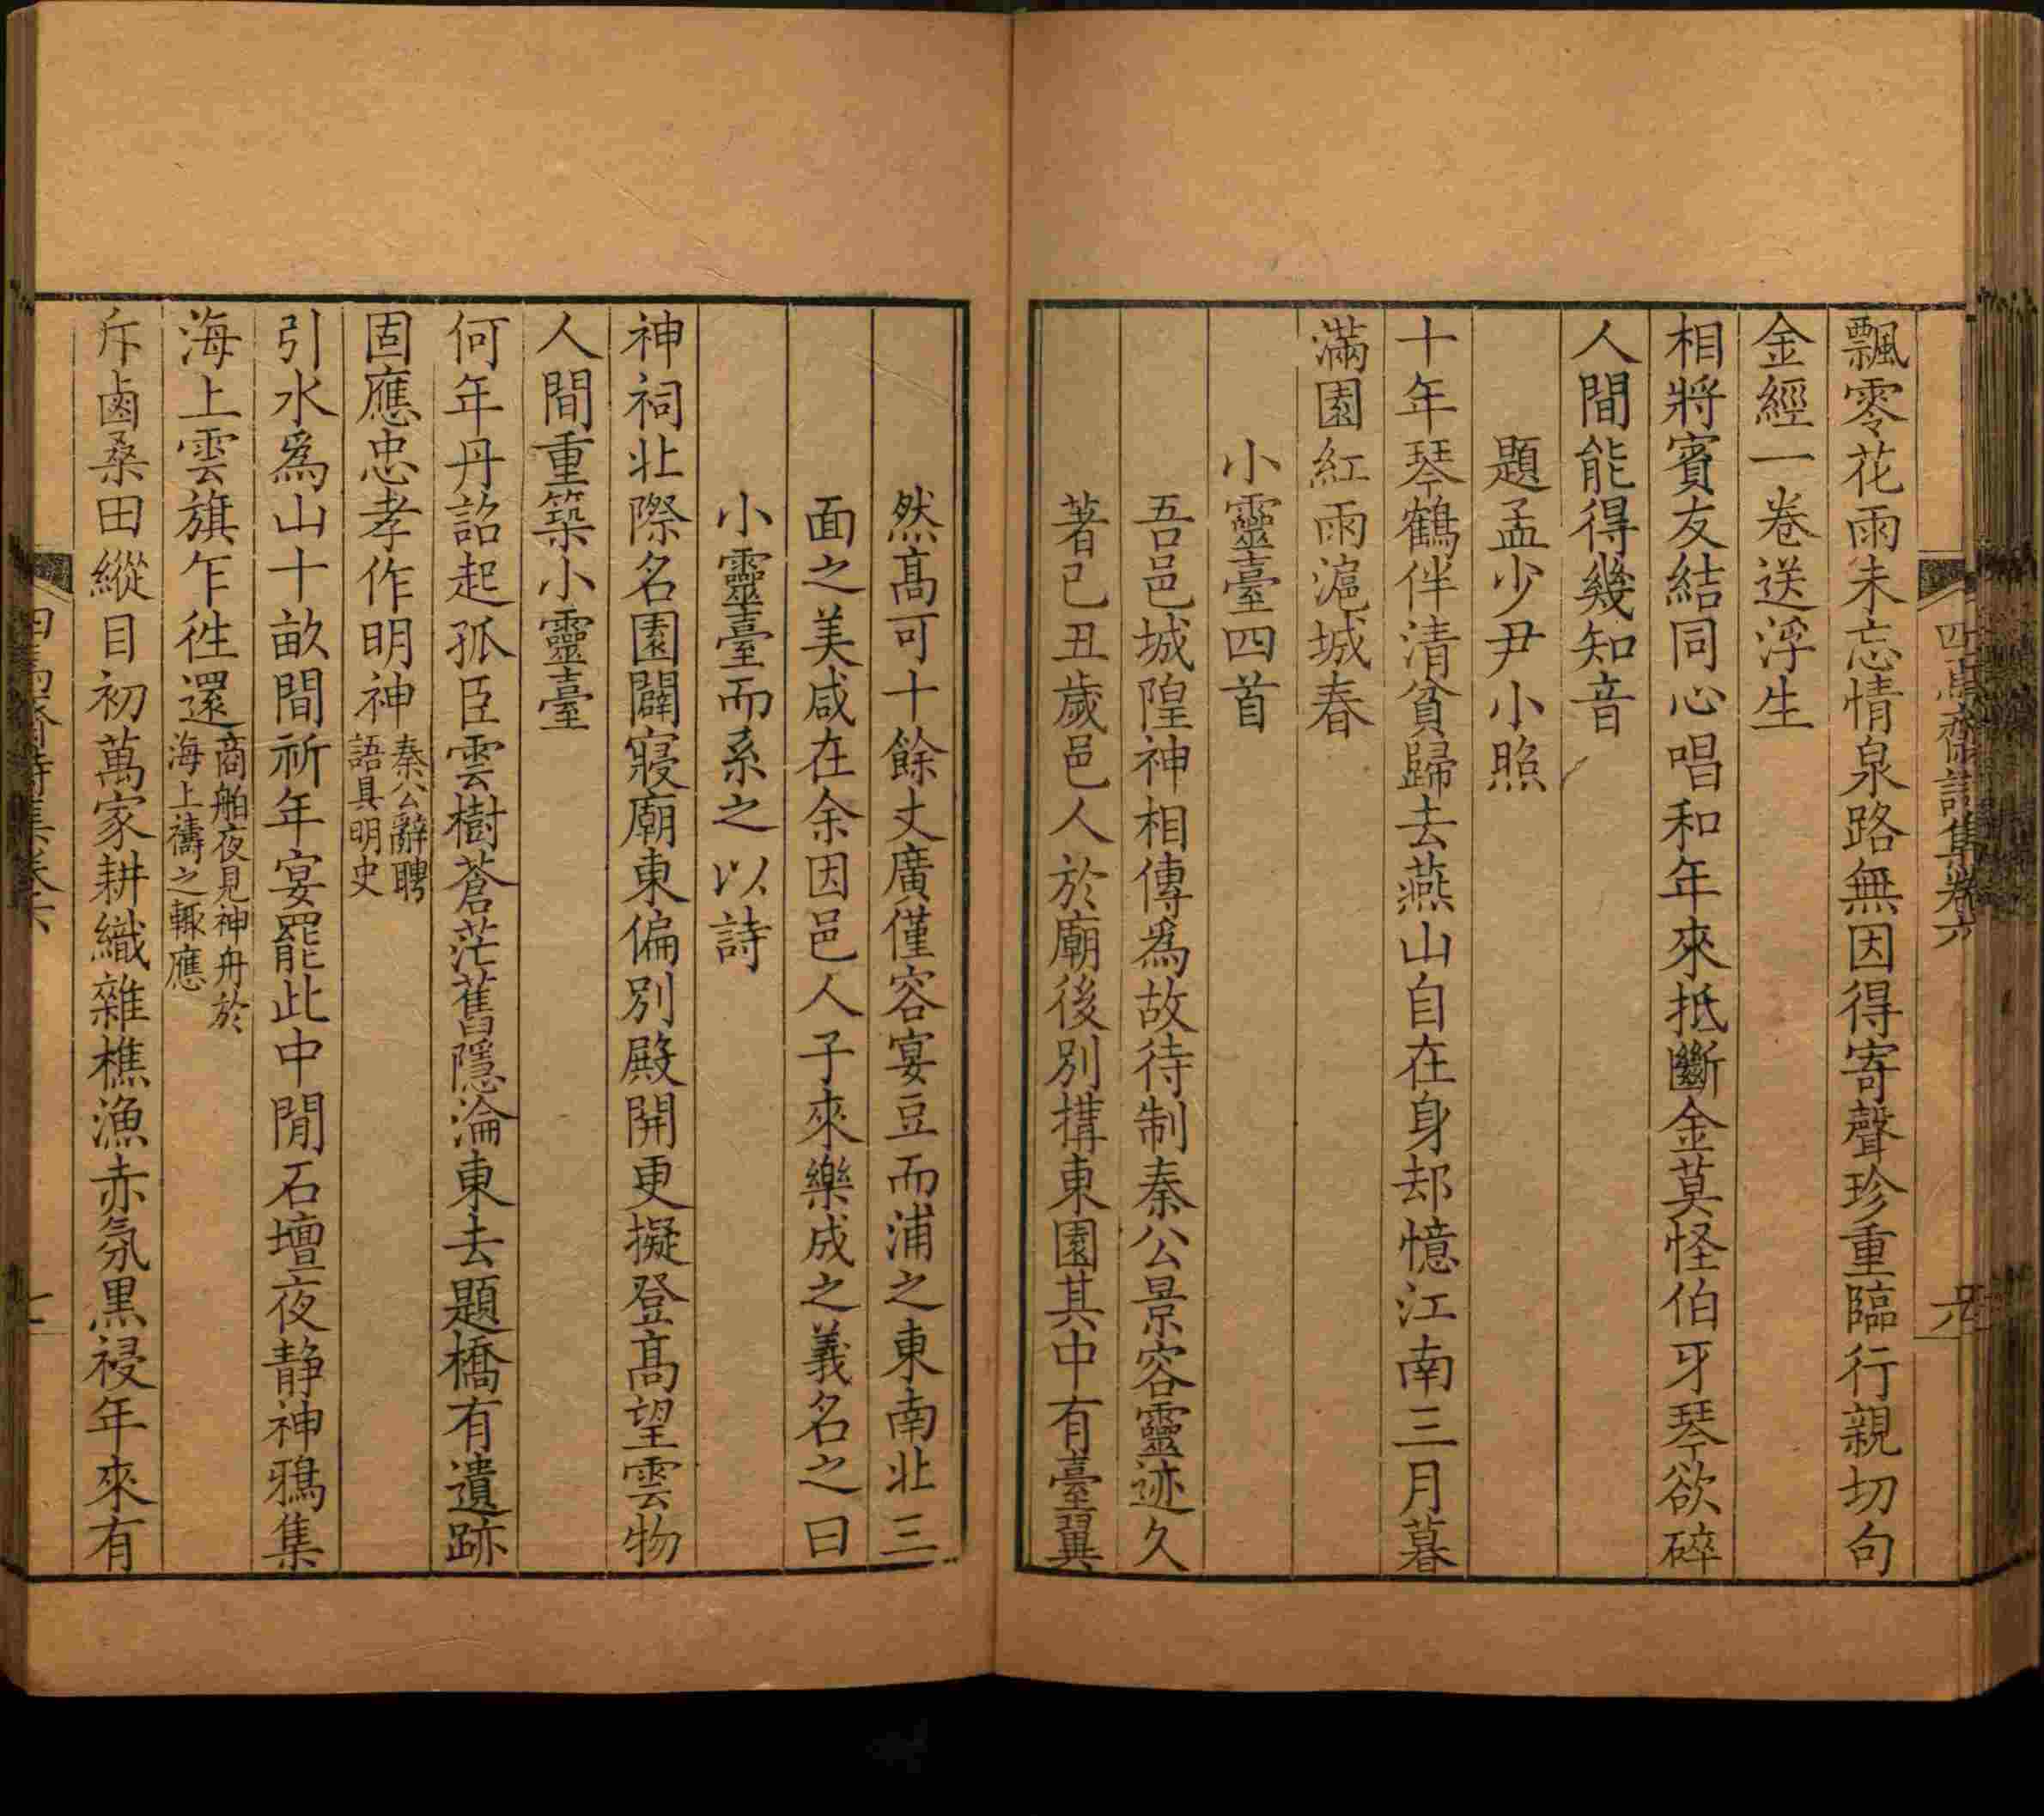 飄零花雨未忘情泉路無因得寄聲珍重臨行親切句
金經一卷送浮生
相將賓友結同心唱和年來抵斷金莫怪伯牙琴欲碎
人間能得幾知音
題孟少尹小照
十年琴鶴伴清貧歸去燕山自在身却憶江南三月暮
滿園紅雨滬城春
小靈臺四首
吾邑城隍神相傳爲故待制秦公景容靈迹久
著己丑歲邑人於廟後別構東園其中有臺翼
然高可十餘丈廣僅容宴豆而浦之東南北三
面之美咸在余因邑人子來樂成之義名之曰
小靈臺而系之以詩
神祠北際名園闢寢廟東偏別殿開更擬登高望雲物
人間重築小靈臺
何年丹詔起孤臣雲樹蒼茫舊隱淪東去題橋有遺跡
固應忠孝作明神秦公辭聘
語具明史
引水爲山十畝間祈年宴罷此中閒石壇夜静神鴉集
海上雲旗乍徃還商舶夜見神舟於
海上禱之輒應
斥鹵桑田縱目初萬家耕織雜樵漁赤氛黑祲年來有